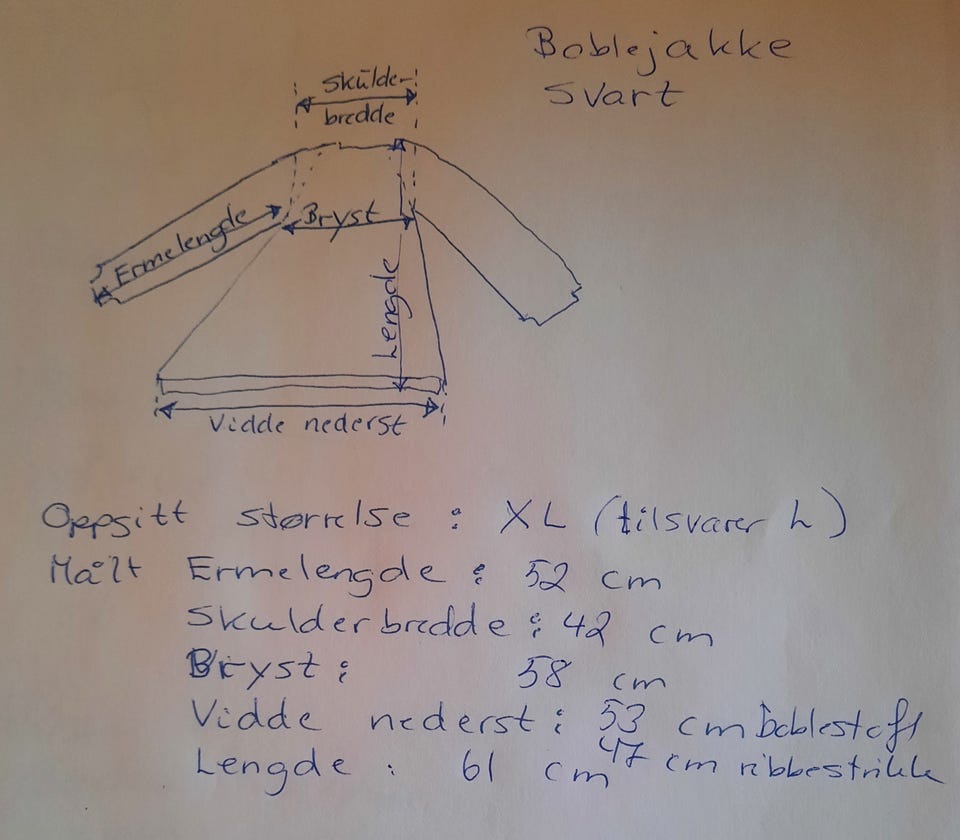 Boblejakke
svart
Skulder-
bredde
Ermelengde
Bryst
Lengde
Vidde nederst
Oppgitt størrelse : XL (tilsvarer L)
Målt Ermelengde : 52 cm
Skulderbredde : 42 cm
Bryst : 58 cm
Vidde nederst : 53 cm boblestoff
47 cm ribbestrikk
Lengde : 61 cm